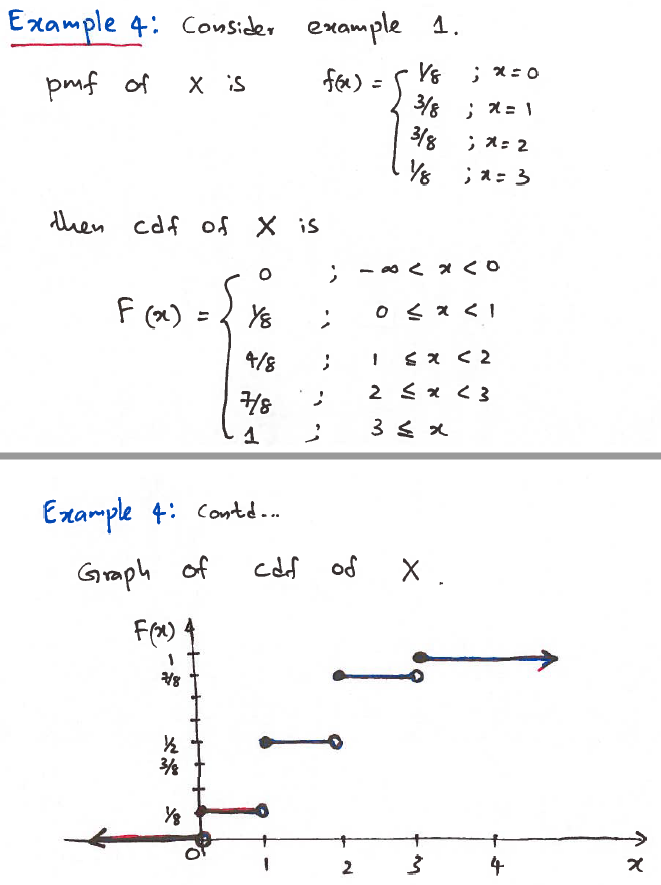 Example 4: Consider example 1.
pmf of X is f(x) = { 1/8 ; x = 0
3/8 ; x = 1
3/8 ; x = 2
1/8 ; x = 3
then cdf of X is
F(x) = { 0 ; -∞ < x < 0
1/8 ; 0 ≤ x < 1
4/8 ; 1 ≤ x < 2
7/8 ; 2 ≤ x < 3
1 ; 3 ≤ x
Example 4: Contd...
Graph of cdf of X.
F(x)
1
7/8
1/2
3/8
1/8
0 1 2 3 4 x